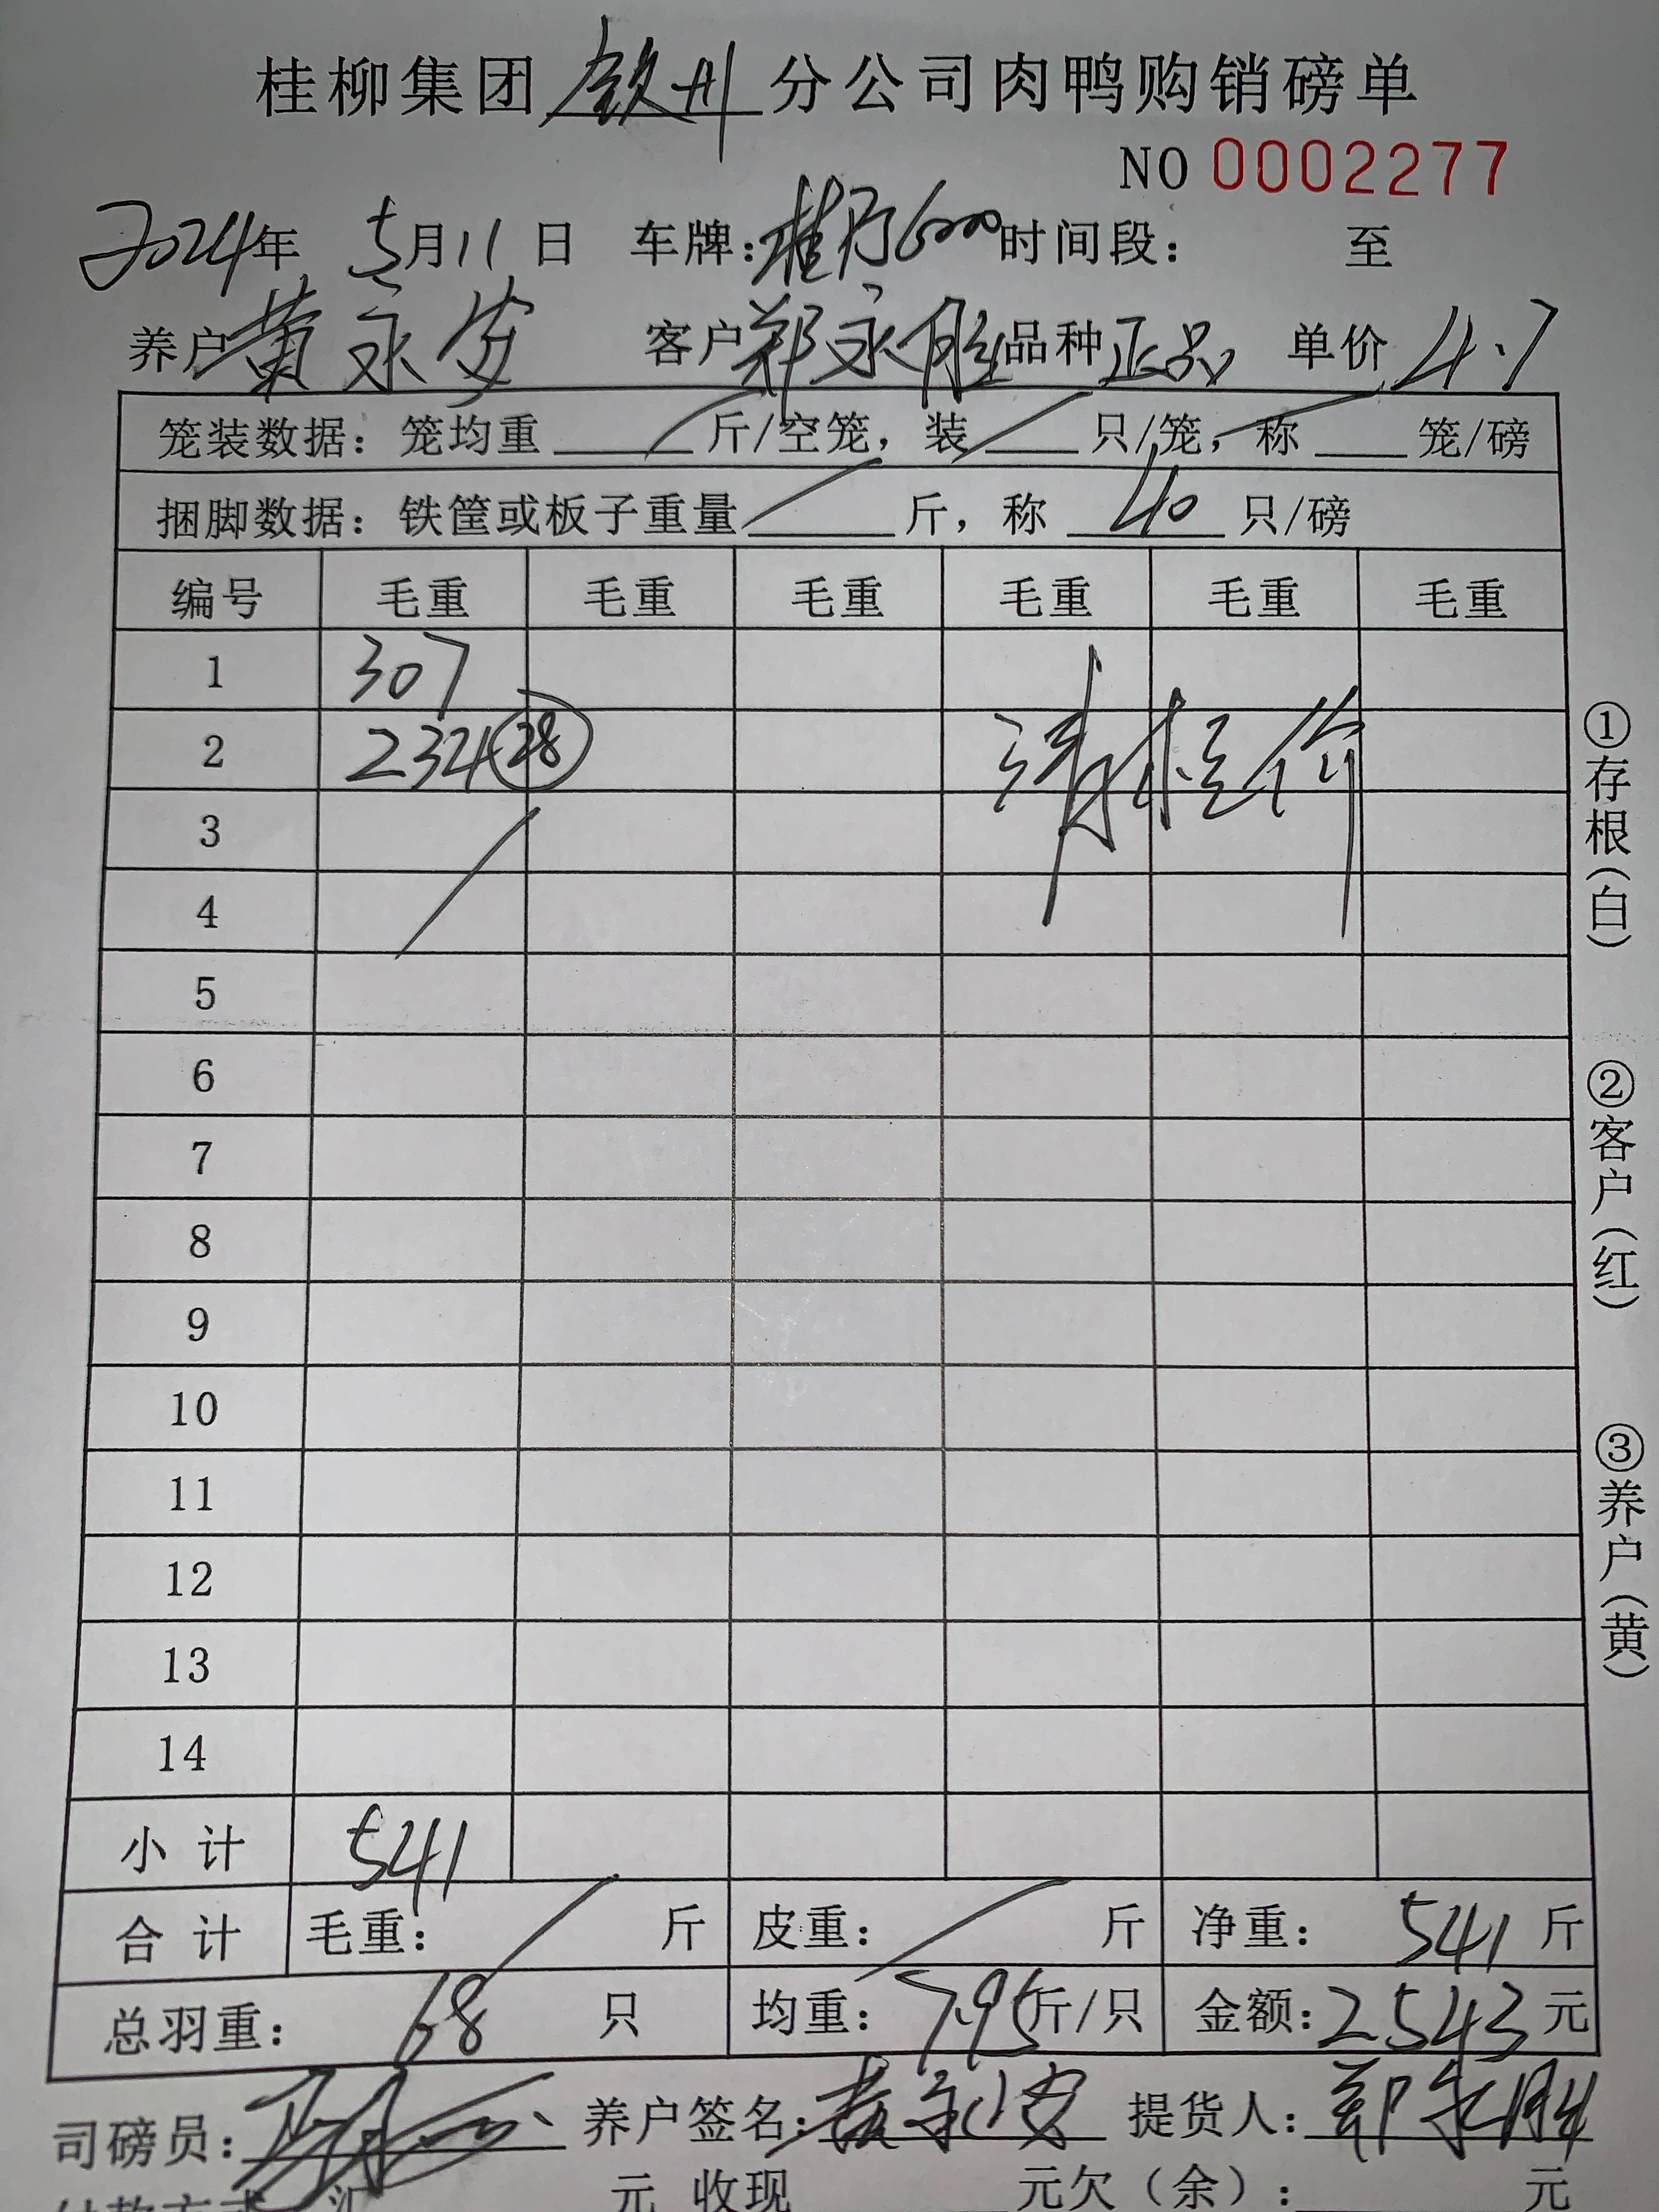 桂柳集团 钦州 分公司肉鸭购销磅单
NO 0002277
2024年 5月11日 车牌: 时间段: 至
养户 黄永安 客户 郑永胜 品种 正品 单价 4.7
笼装数据: 笼均重 斤/空笼, 装 只/笼, 称 笼/磅
捆脚数据: 铁筐或板子重量 斤, 称 40 只/磅
编号 毛重 毛重 毛重 毛重 毛重 毛重
1 307
2 234 28
3
4
5
6
7
8
9
10
11
12
13
14
小计 541
合计 毛重: 斤 皮重: 斤 净重: 541 斤
总羽重: 68 只 均重: 7.95 斤/只 金额: 2543 元
司磅员: 养户签名: 黄永安 提货人: 郑永胜
付款方式 汇 元 收现 元欠(余): 元
①存根(白)
②客户(红)
③养户(黄)